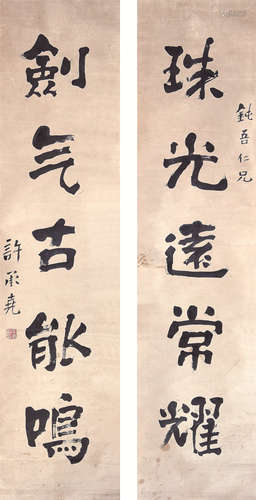 鈍吾仁兄
珠光遠常耀
劍气古能鳴
許承堯